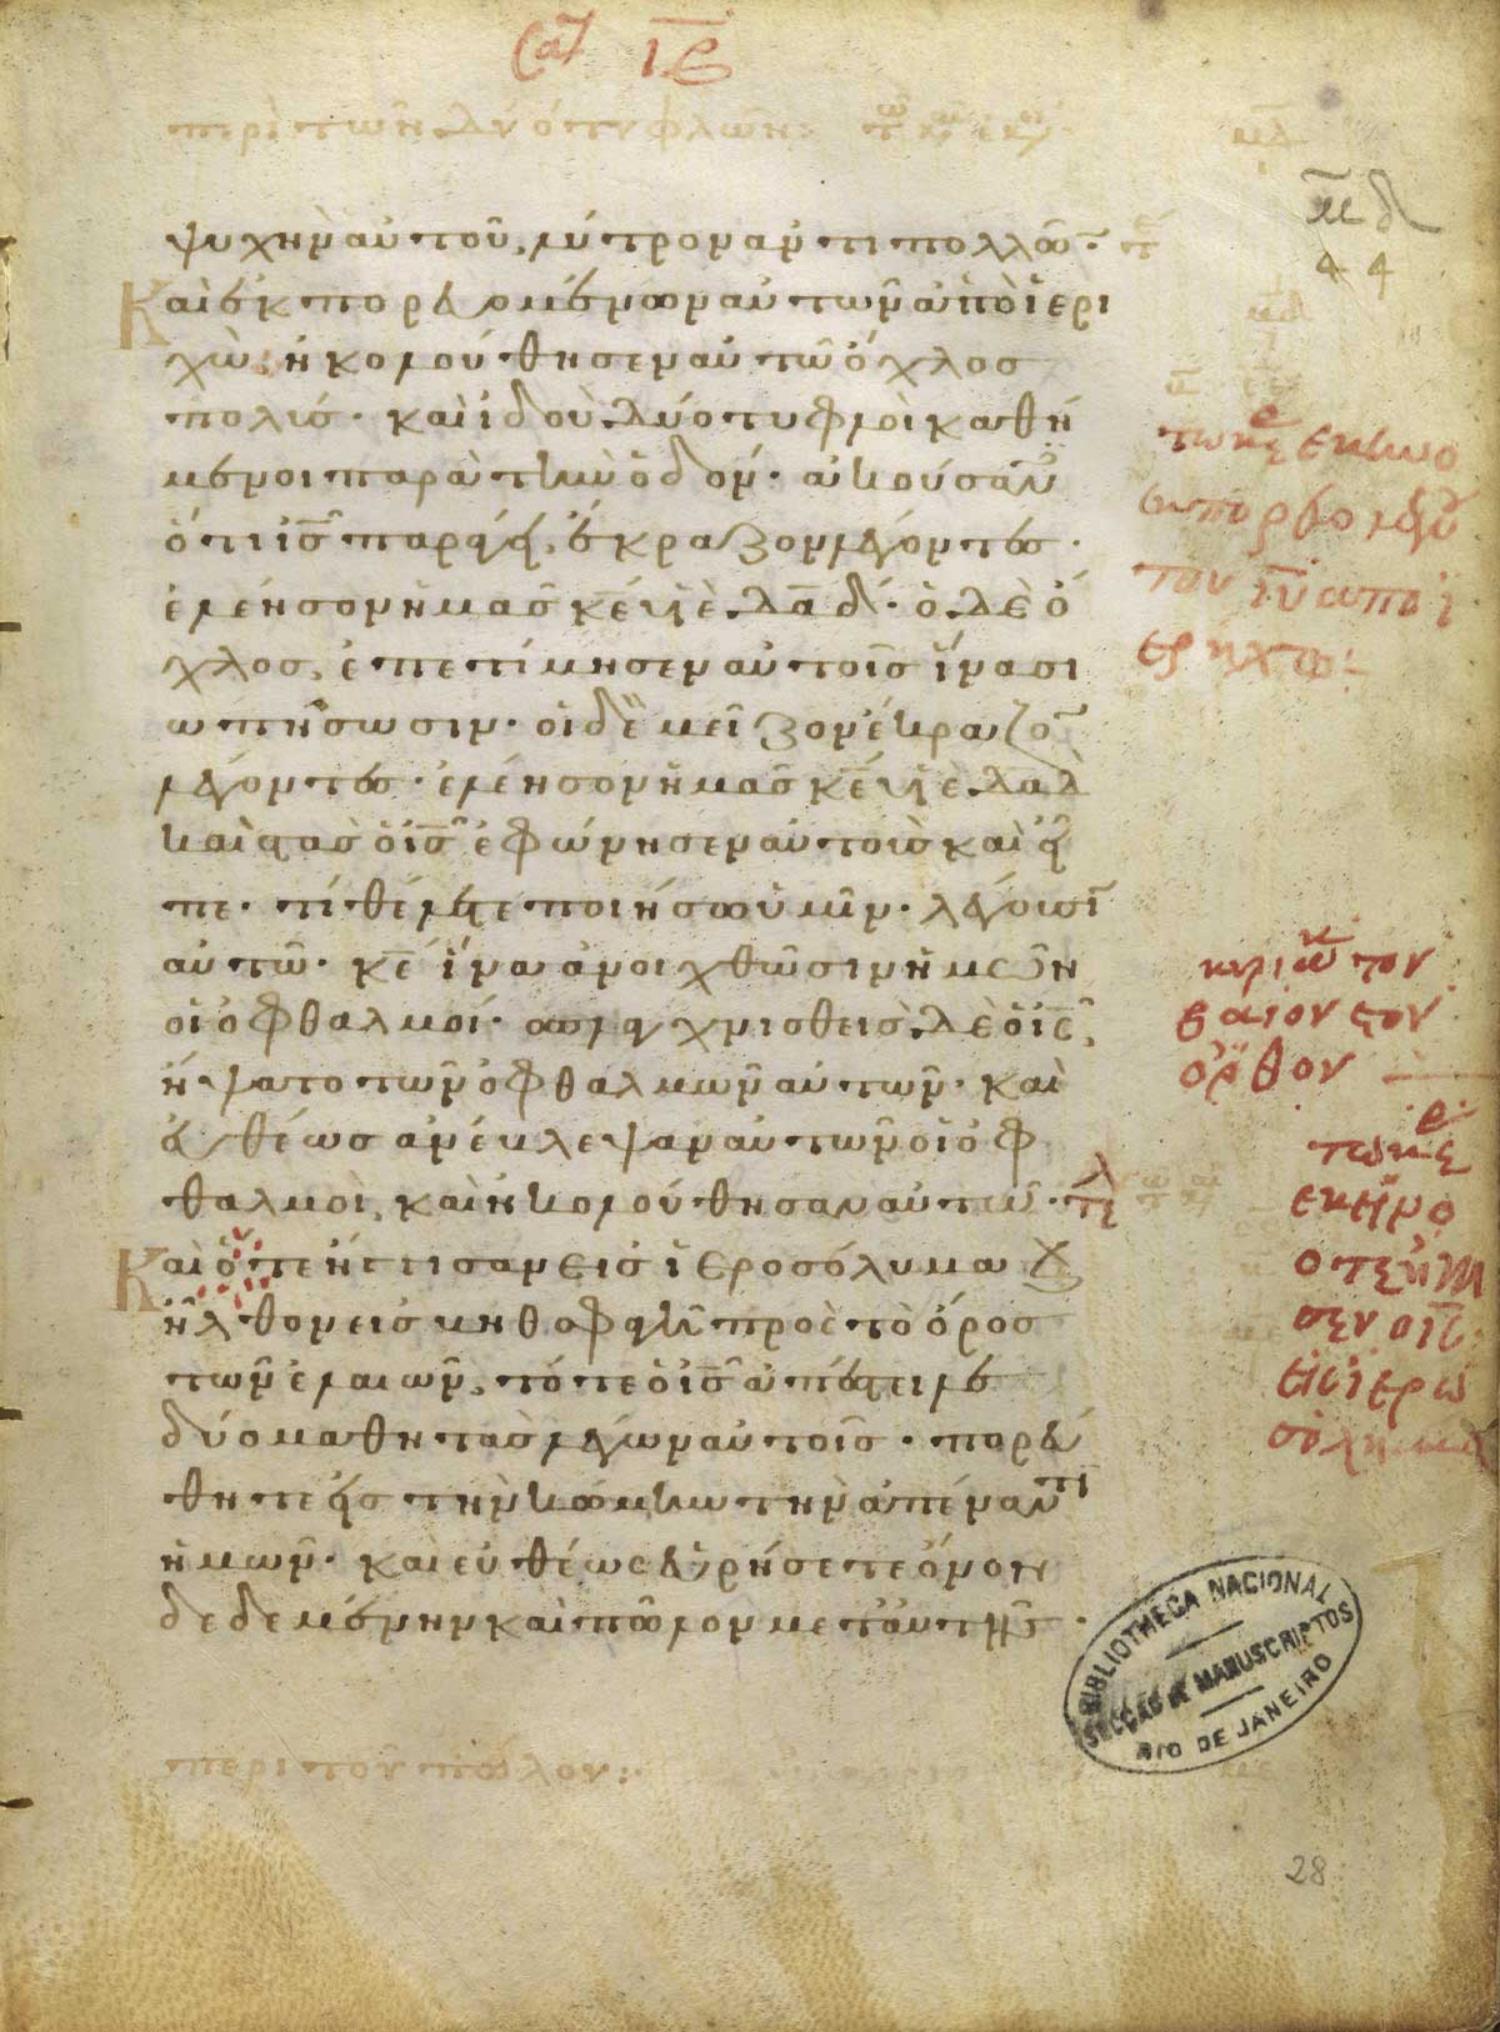 Σα ιβ
περὶ τῶν δύο τυφλῶν:
μδ
44
ψυχὴν αὐτοῦ, λύτρον ἀντὶ πολλῶν· τέ
Καὶ ἐκπορευομένων αὐτῶν ἀπὸ ἱερι
χὼ, ἠκολούθησεν αὐτῶ ὄχλος
πολύς· καὶ ἰδοὺ δύο τυφλοὶ καθή
μενοι παρὰ τὴν ὁδόν· ἀκούσαντες
ὅτι ἰς παράγει, ἔκραξον λέγοντες·
ἐλέησον ἡμᾶς κε υἱὲ δαδ· ὁ δὲ ὄ
χλος, ἐπετίμησεν αὐτοῖς ἵνα σι
ωπήσωσιν· οἱ δὲ μεῖζον ἔκραζον
λέγοντες· ἐλέησον ἡμᾶς κε υἱὲ δαδ
καὶ στὰς ὁ ἰς ἐφώνησεν αὐτοὺς καὶ εἶ
πε· τί θέλετε ποιήσω ὑμῖν· λέγουσι
αὐτῶ· κε ἵνα ἀνοιχθῶσιν ἡμῶν
οἱ ὀφθαλμοί· σπλαγχνισθεὶς δὲ ὁ ἰς,
ἥψατο τῶν ὀφθαλμῶν αὐτῶν· καὶ
εὐθέως ἀνέβλεψαν αὐτῶν οἱ ὀφ
θαλμοὶ, καὶ ἠκολούθησαν αὐτῶ· τέλ
Καὶ ὅτε ἤγγισαν εἰς ἱεροσόλυμα καὶ
ἦλθον εἰς βηθσφαγῆ πρὸς τὸ ὄρος
τῶν ἐλαιῶν, τότε ὁ ἰς ἀπέστειλε
δύο μαθητὰς λέγων αὐτοῖς· πορεύ
θητε εἰς τὴν κώμην τὴν ἀπέναντι
ἡμῶν· καὶ εὐθέως εὑρήσετε ὄνον
δεδεμένην καὶ πῶλον μετ' αὐτῆς·
τω κ ε εκινο
εκπορβομεν
του ιυ απο ι
ερηχω:
κυριακ τον
βαιον εον
ορθον
τω κ ε
εκηνο
οτε ηγγι
σεν ο ις
εις ιερω
σολημα
περὶ τοῦ πώλου:
BIBLIOTHECA NACIONAL
SECÇÃO DE MANUSCRIPTOS
RIO DE JANEIRO
28